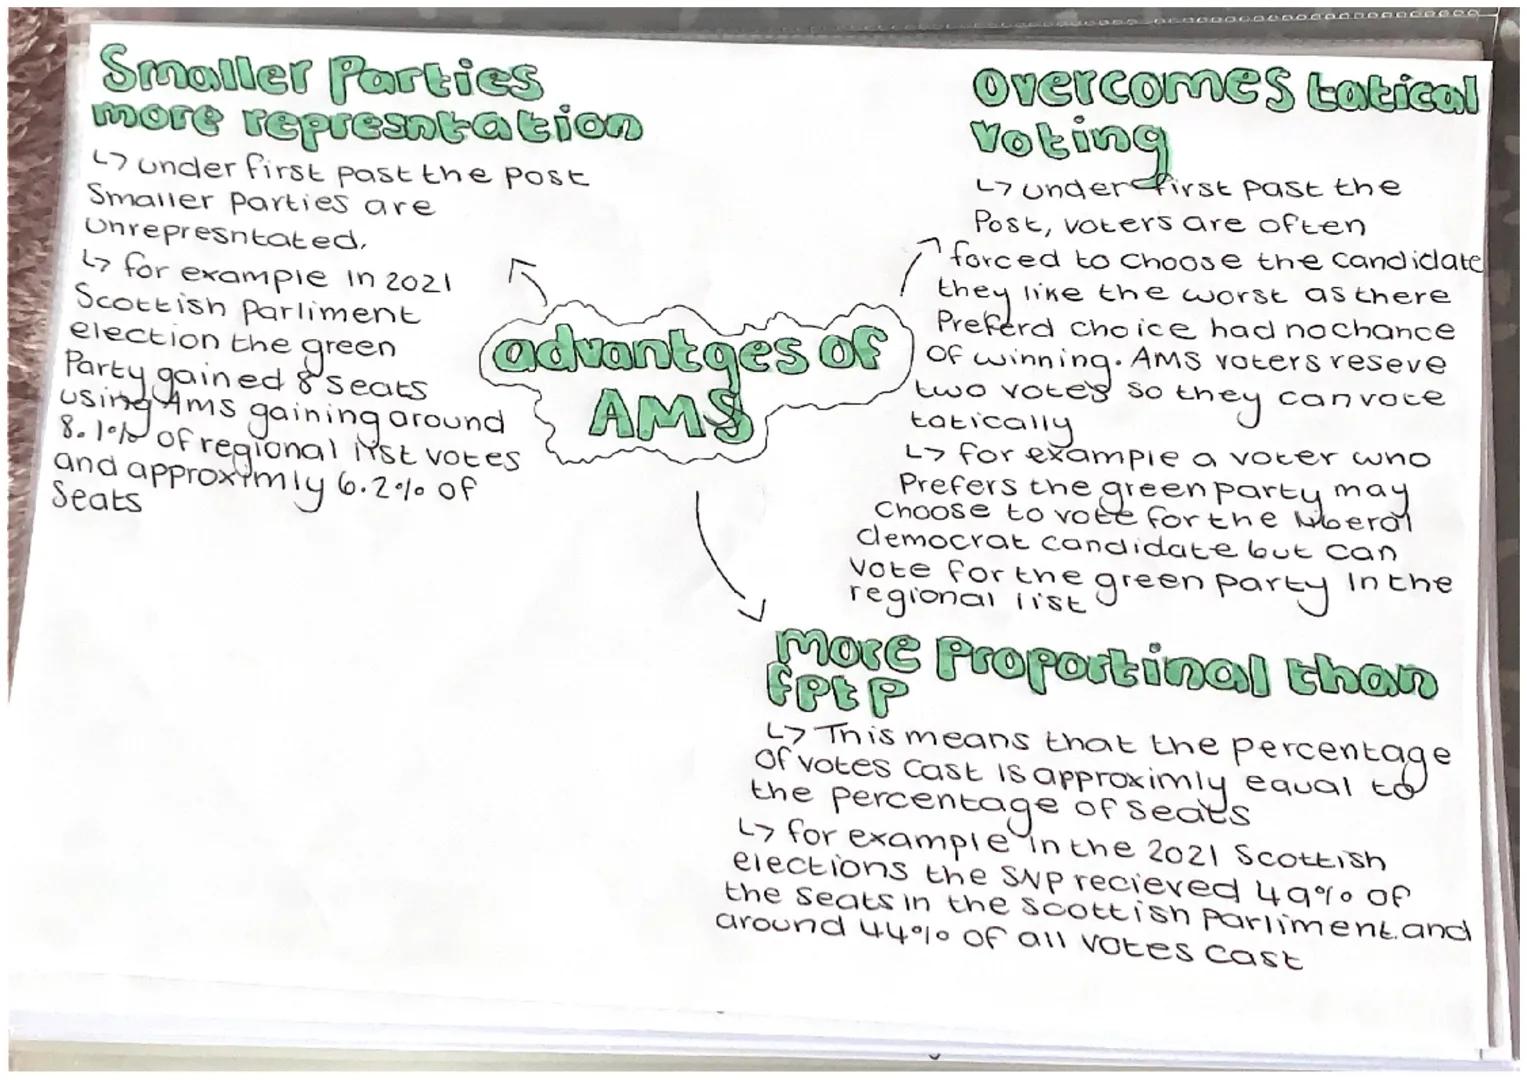 Smaller Parties
more represntation
↳ under first past the post
Smaller parties are
unrepresntated.
↳ for example in 2021
Scottish parliment
election the green
Party gained 8 seats
using AMS gaining around
8.1% of regional list votes
and approximly 6.2% of
Seats
advantges of
AMS
overcomes tatical
voting
↳ under first past the
Post, voters are often
forced to choose the candidate
they like the worst as there
Preferd choice had no chance
of winning. AMS voters reseve
two votes so they can vote
tatically
↳ for example a voter who
Prefers the green party may
choose to vote for the liberal
democrat candidate but can
vote for the green party in the
regional list
more Proportinal than
fptp
↳ This means that the percentage
of votes cast is approximly equal to
the percentage of seats
↳ for example in the 2021 Scottish
elections the SNP recieved 49% of
the seats in the scottish parliment and
around 44% of all votes cast